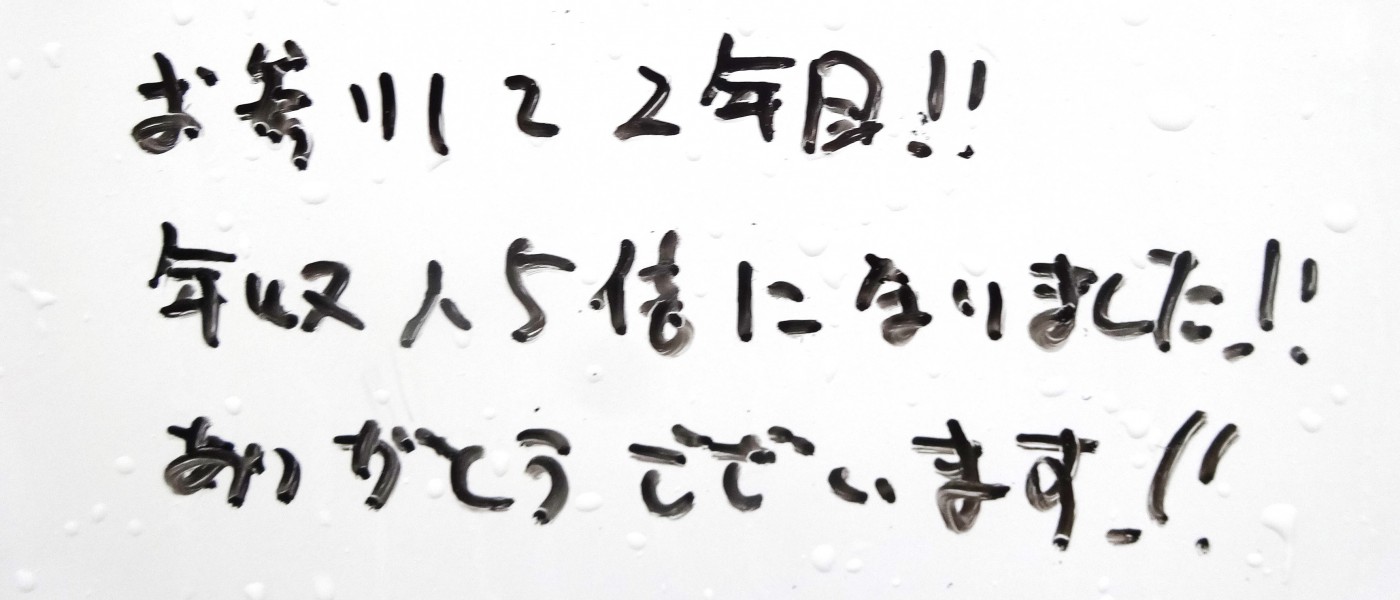 お笑いして2年目!!
年収入5倍になりました!!
ありがとうございます!!